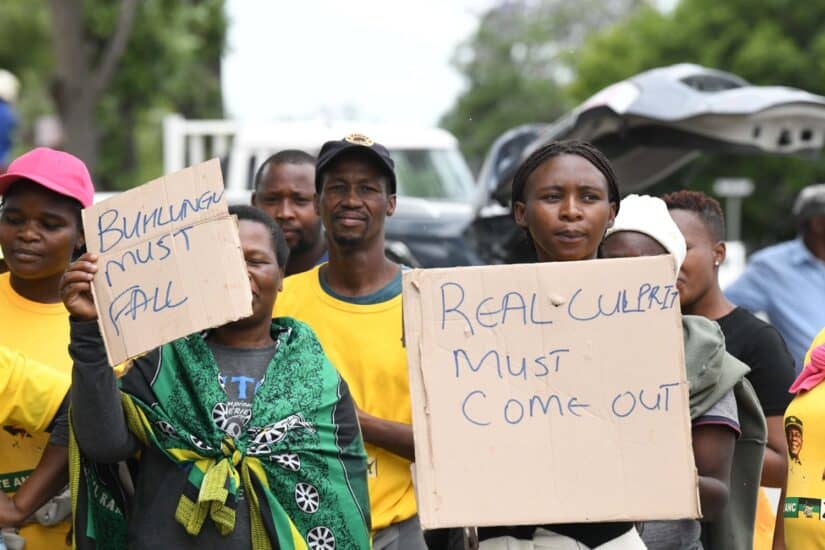 BUHLUNGU
MUST
FALL
REAL CULPRIT
MUST
COME OUT
ANC